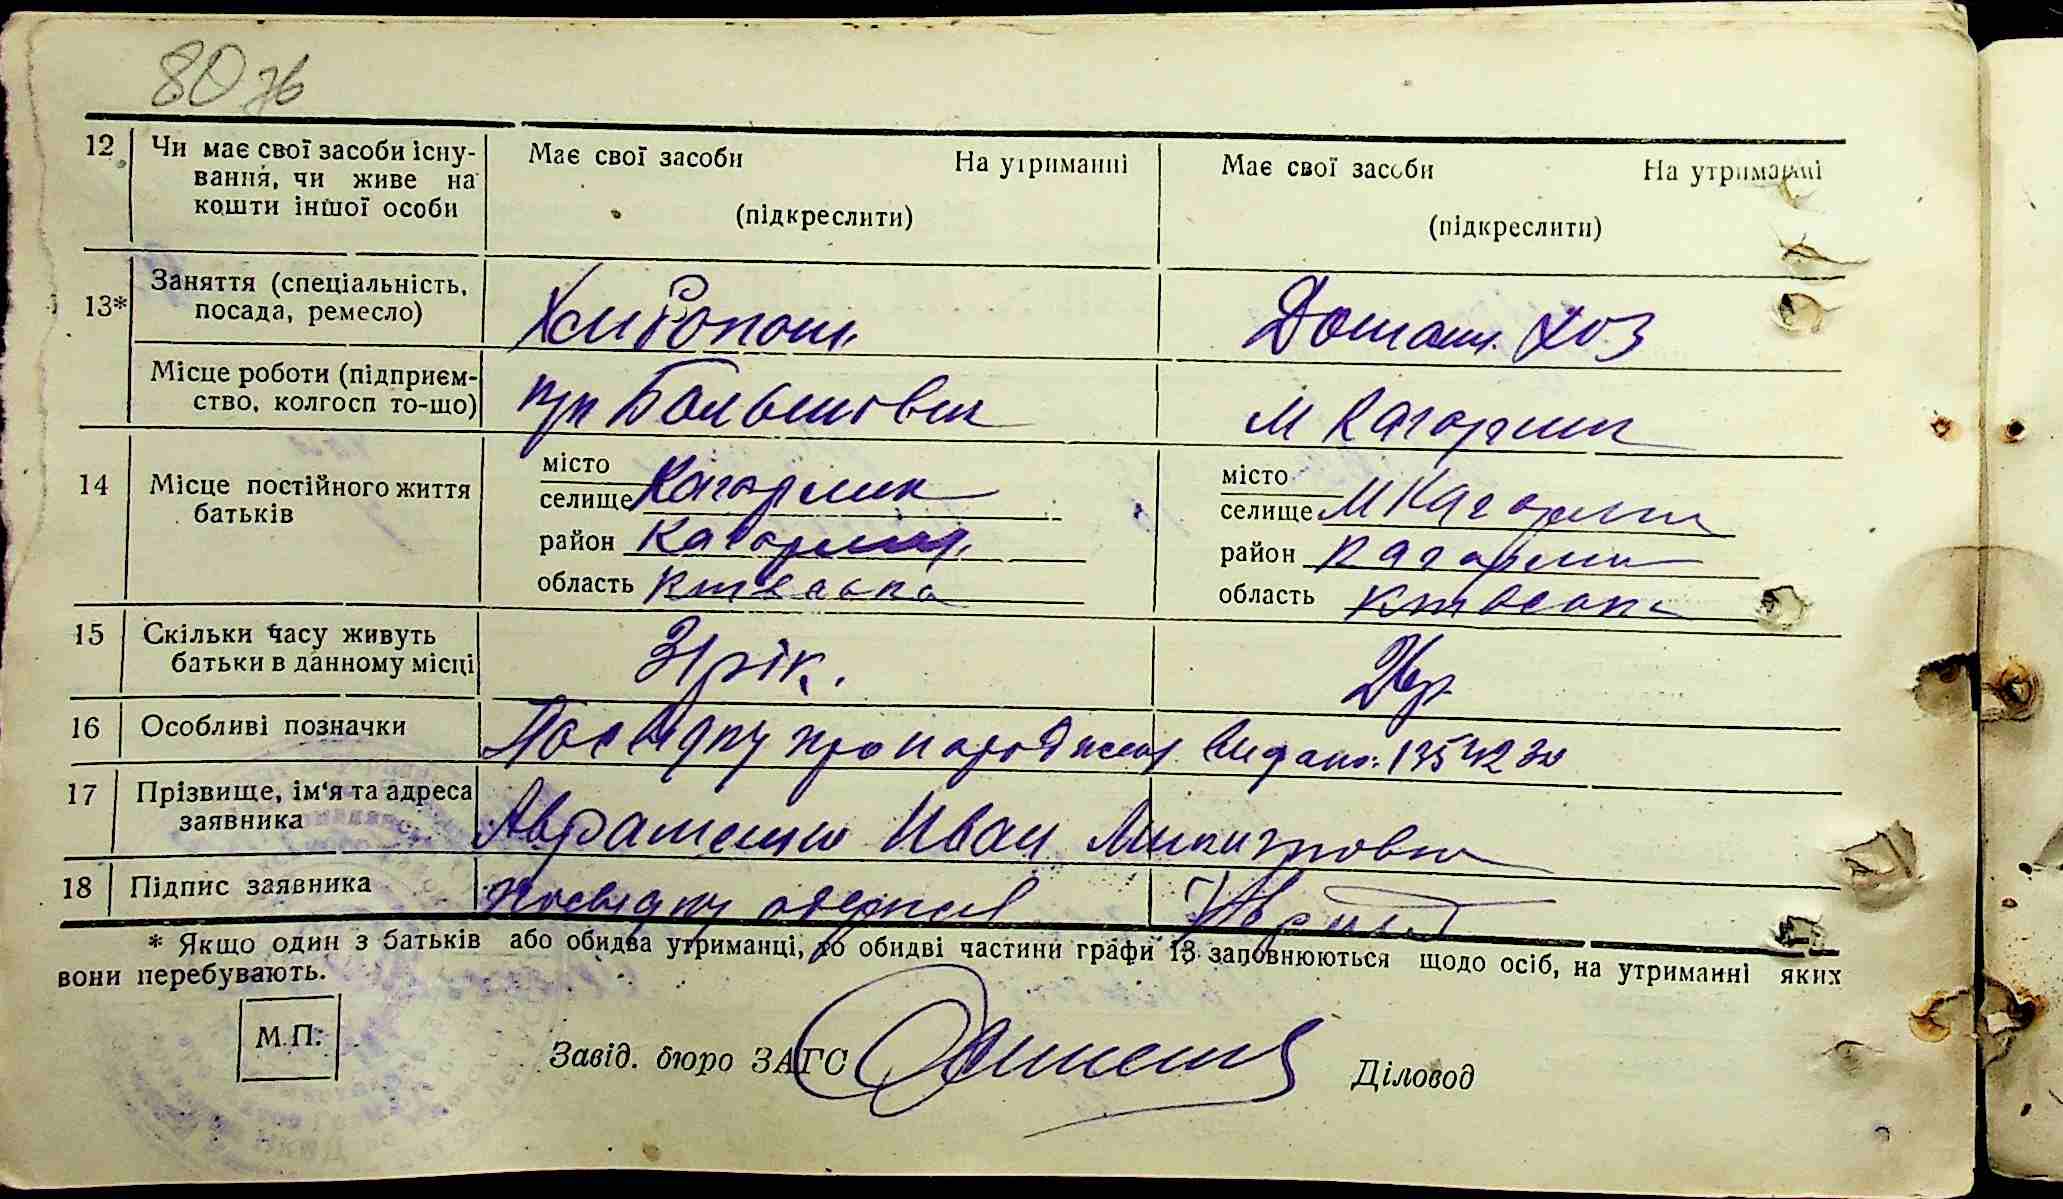 80 зв
12 Чи має свої засоби існу- Має свої засоби На утриманні Має свої засоби На утриманні
вання, чи живе на
кошти іншої особи (підкреслити) (підкреслити)
13* Заняття (спеціальність, посада, ремесло) Домашн. Хоз
Місце роботи (підприєм- Большовик м Кагарлик
ство, колгосп то-що)
14 Місце постійного життя батьків
місто Кагарлик місто м Кагарлик
селище селище
район Кагарлиц. район Кагарлик
область Київська область Київська
15 Скільки часу живуть 31 рік.
батьки в данному місці
16 Особливі позначки Посвідку про народження видано: 135423
17 Прізвище, ім'я та адреса
заявника Авраменко Иван Микитович
18 Підпис заявника посвідку одержав
* Якщо один з батьків або обидва утриманці, то обидві частини графи 13 заповнюються щодо осіб, на утриманні яких
вони перебувають.
М.П.
Завід. бюро ЗАГС Діловод